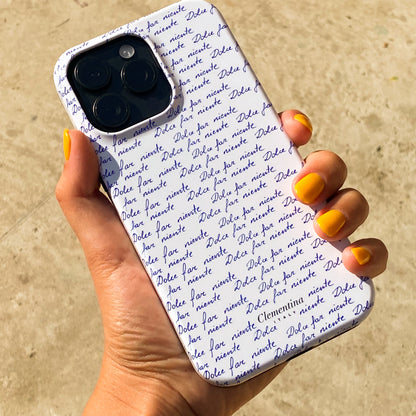 Dolce far
niente Dolce far
niente Dolce far niente
Dolce far niente Dolce far niente
Dolce far niente Dolce far niente
Dolce far niente Dolce far niente
Dolce far niente Dolce far niente
Dolce far niente Dolce far niente
Dolce far niente Dolce far niente
Dolce far niente Dolce far niente
Clementina
ITALY
Dolce far niente Dolce far niente
Dolce far niente Dolce
far niente